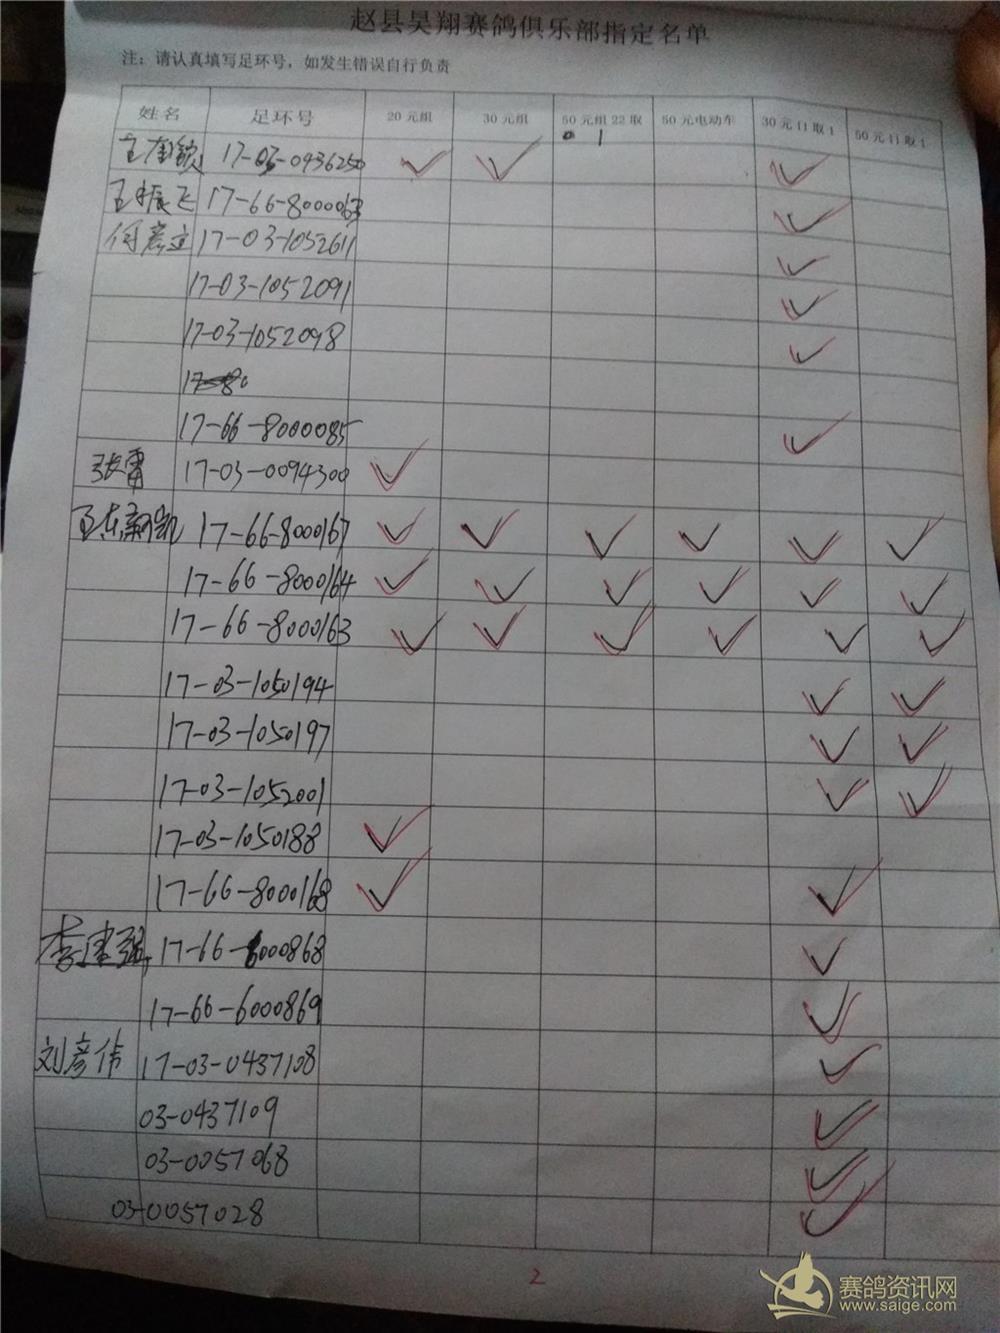 赵县昊翔赛鸽俱乐部指定名单
注：请认真填写足环号，如发生错误自行负责
姓名 足环号 20元组 30元组 50元组22取1 50元电动车 30元11取1 50元11取1
17-03-0936250
王振飞 17-66-8000063
何彦立 17-03-1052611
17-03-1052091
17-03-1052098
17-66-8000085
张雷 17-03-0094300
17-66-8000167
17-66-8000164
17-66-8000163
17-03-1050194
17-03-1050197
17-03-1052001
17-03-1050188
17-66-8000168
李建强 17-66-6000868
17-66-6000869
刘彦伟 17-03-0437108
03-0437109
03-0057068
03-0057028
2
赛鸽资讯网
www.saige.com